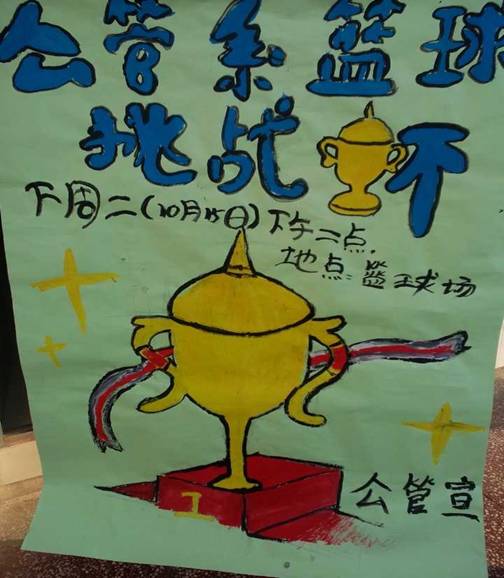 公管系篮球
挑战杯
下周二(10月15日)下午二点.
地点:篮球场
1
公管宣